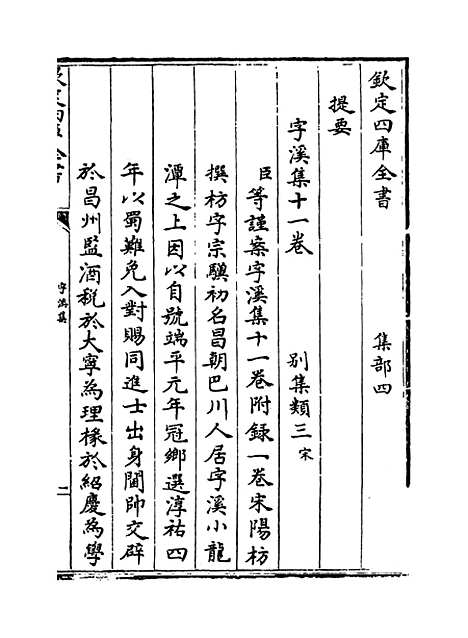 欽定四庫全書 集部四
提要
字溪集十一卷 别集類三宋
臣等謹案字溪集十一卷附録一卷宋陽枋
撰枋字宗驥初名昌朝巴川人居字溪小龍
潭之上因以自號端平元年冠鄉選淳祐四
年以蜀難免入對賜同進士出身閫帥交辟
於昌州監酒稅於大寧為理掾於紹慶為學
字溪集